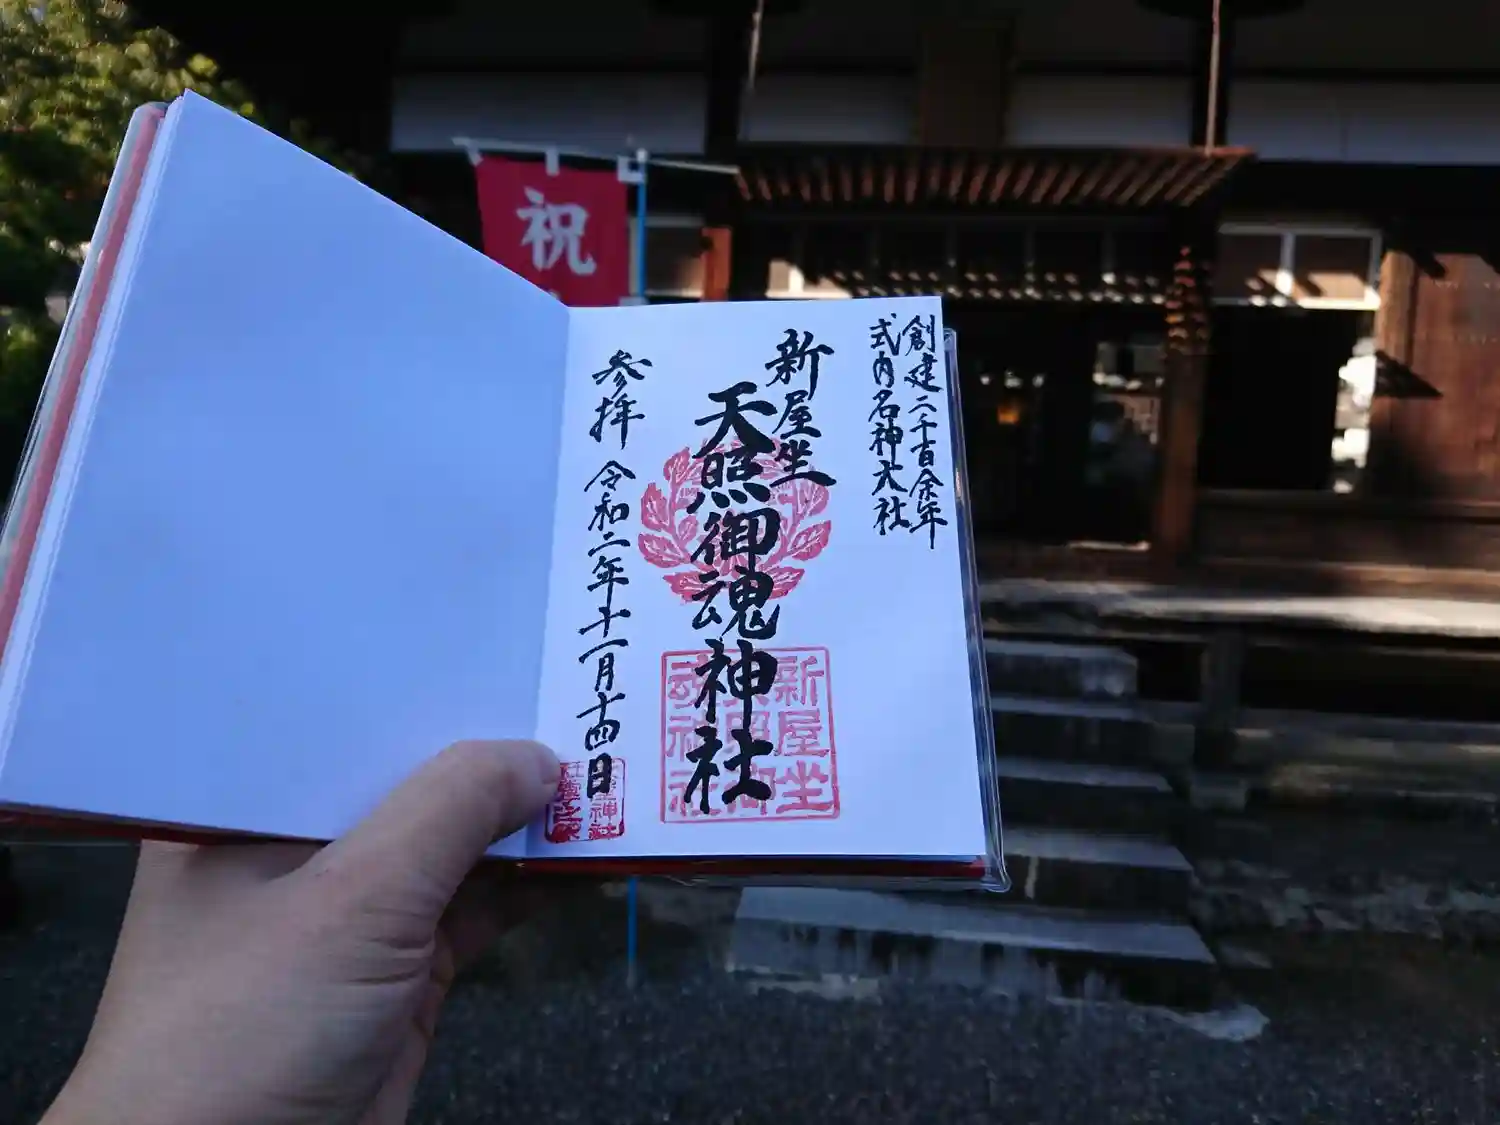 祝
創建二千百余年
式内名神大社
新屋坐
天照御魂神社
参拝 令和二年十一月十四日
新屋坐
天照御
魂神社